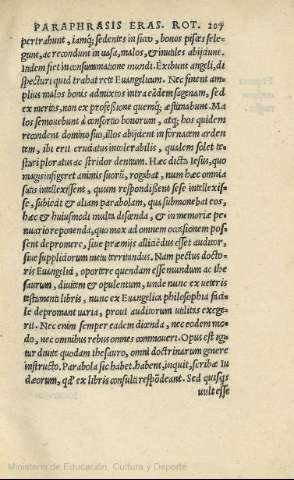 PARAPHRASIS ERAS. ROT. 207
pertrahunt, iamq́; sedentes in sicco, bonos pisces sele-
gunt, ac recondunt in vasa, malos, & inutiles abijciunt.
Idem fiet in consummatione mundi. Exibunt angeli, di
specturi quid trahat rete Euangelium. Nec sinent am-
plius malos bonis admixtos intra eãdem sagenam, sed
ex meritis, non ex professione quemq́; æstimabunt. Ma
los semouebunt à consortio bonorum, atq́; hos quidem
recondent domino suo, illos abijcient in fornacem arden
tem, ibi erit cruciatus intolerabilis, qualem solet te-
stari ploratus ac stridor dentium. Hæc dicta Iesus, quo
magis infigeret animis suorũ, rogabat, num hæc omnia
satis intellexissent, quum respondissent sese intellexis-
se, subiicit & aliam parabolam, qua submonebat eos,
hæc & huiusmodi multa discenda, & in memoriæ pe-
nuario reponenda, quo mox ad omnem occasionem pos
sent depromere, siue præmijs alliciẽdus esset auditor,
siue suppliciorum metu territandus. Nam pectus docto-
ris Euangelici, oportere quendam esse mundum ac the
saurum, diuitem & opulentum, unde nunc ex veteris
testamenti libris, nunc ex Euangelica philosophia faci-
le depromant varia, prout auditorum utilitas exege-
rit. Nec enim semper eadem dicenda, nec eodem mo-
do, nec omnibus rebus omnes commouert. Opus est igi-
tur diuite quodam thesauro, omni doctrinarum genere
instructo. Parabola sic habet. habent, inquit, scribæ Iu
dæorum, qd' ex libris consulti respõdeant. Sed quisqs
uult esse
Ministerio de Educación, Cultura y Deporte